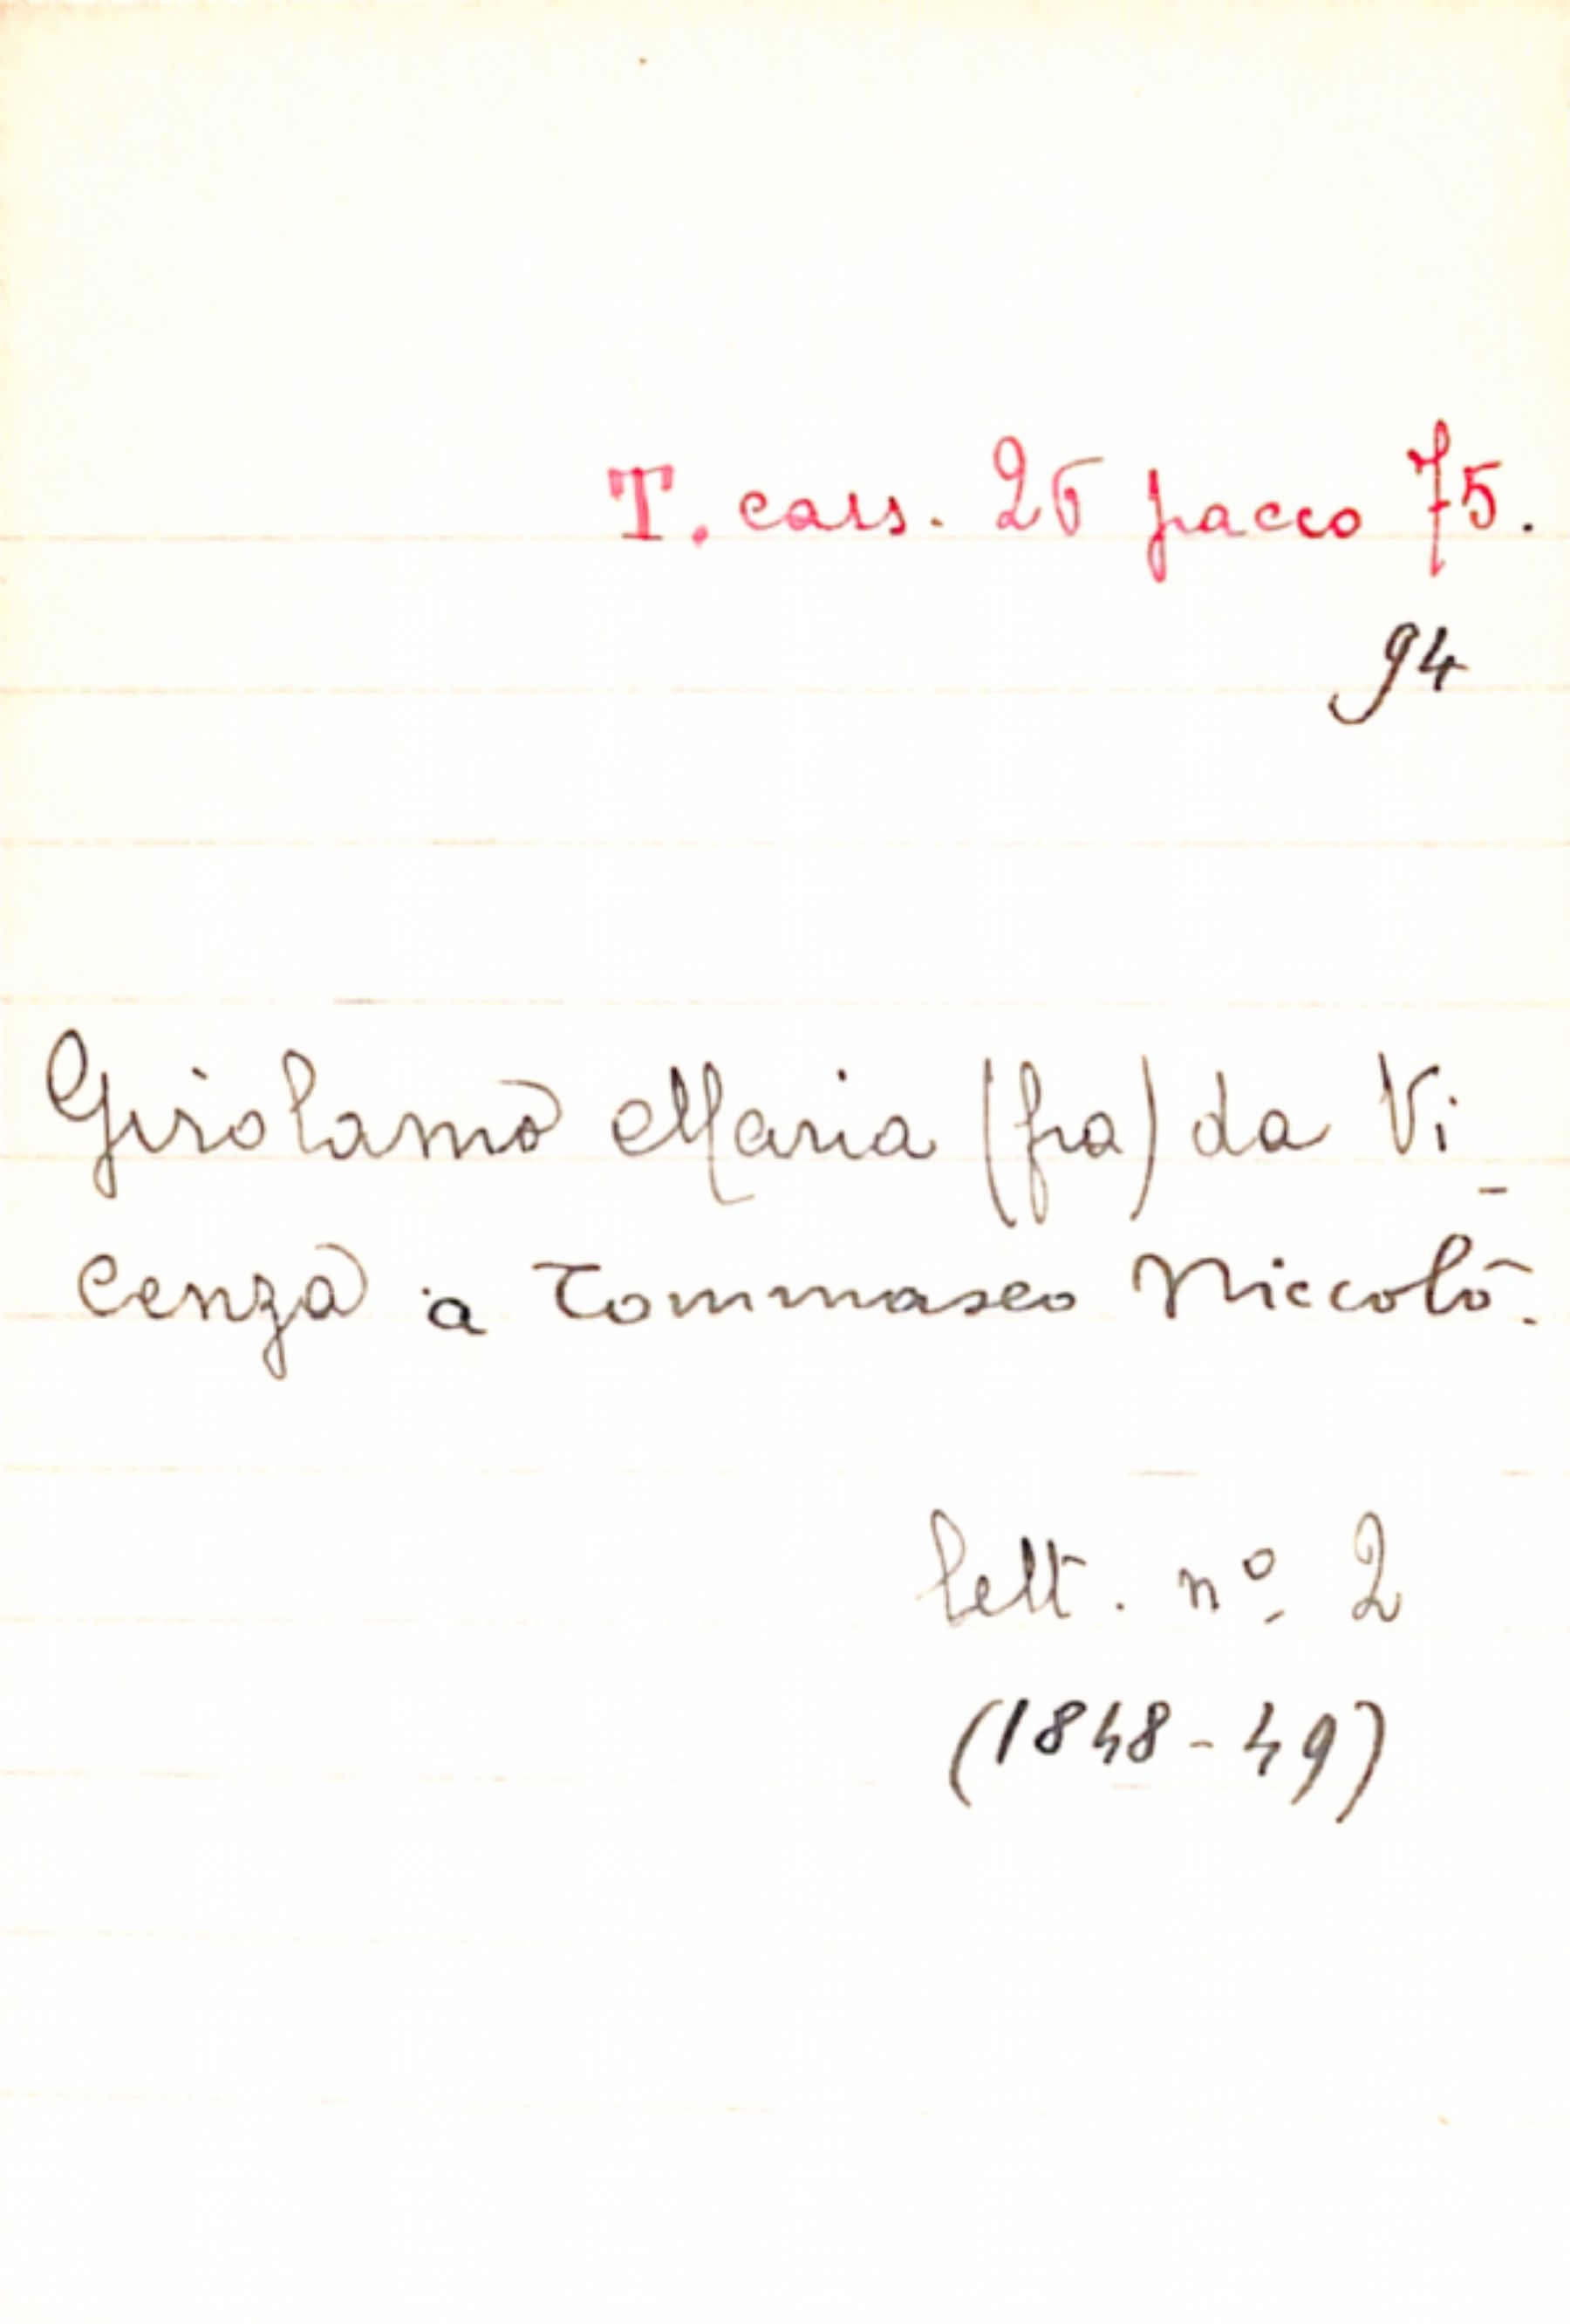 T. cass. 26 pacco 75.
94
Girolamo Maria (fra) da Vi-
cenza a Tommaseo Niccolò.
lett. nº 2
(1848-49)